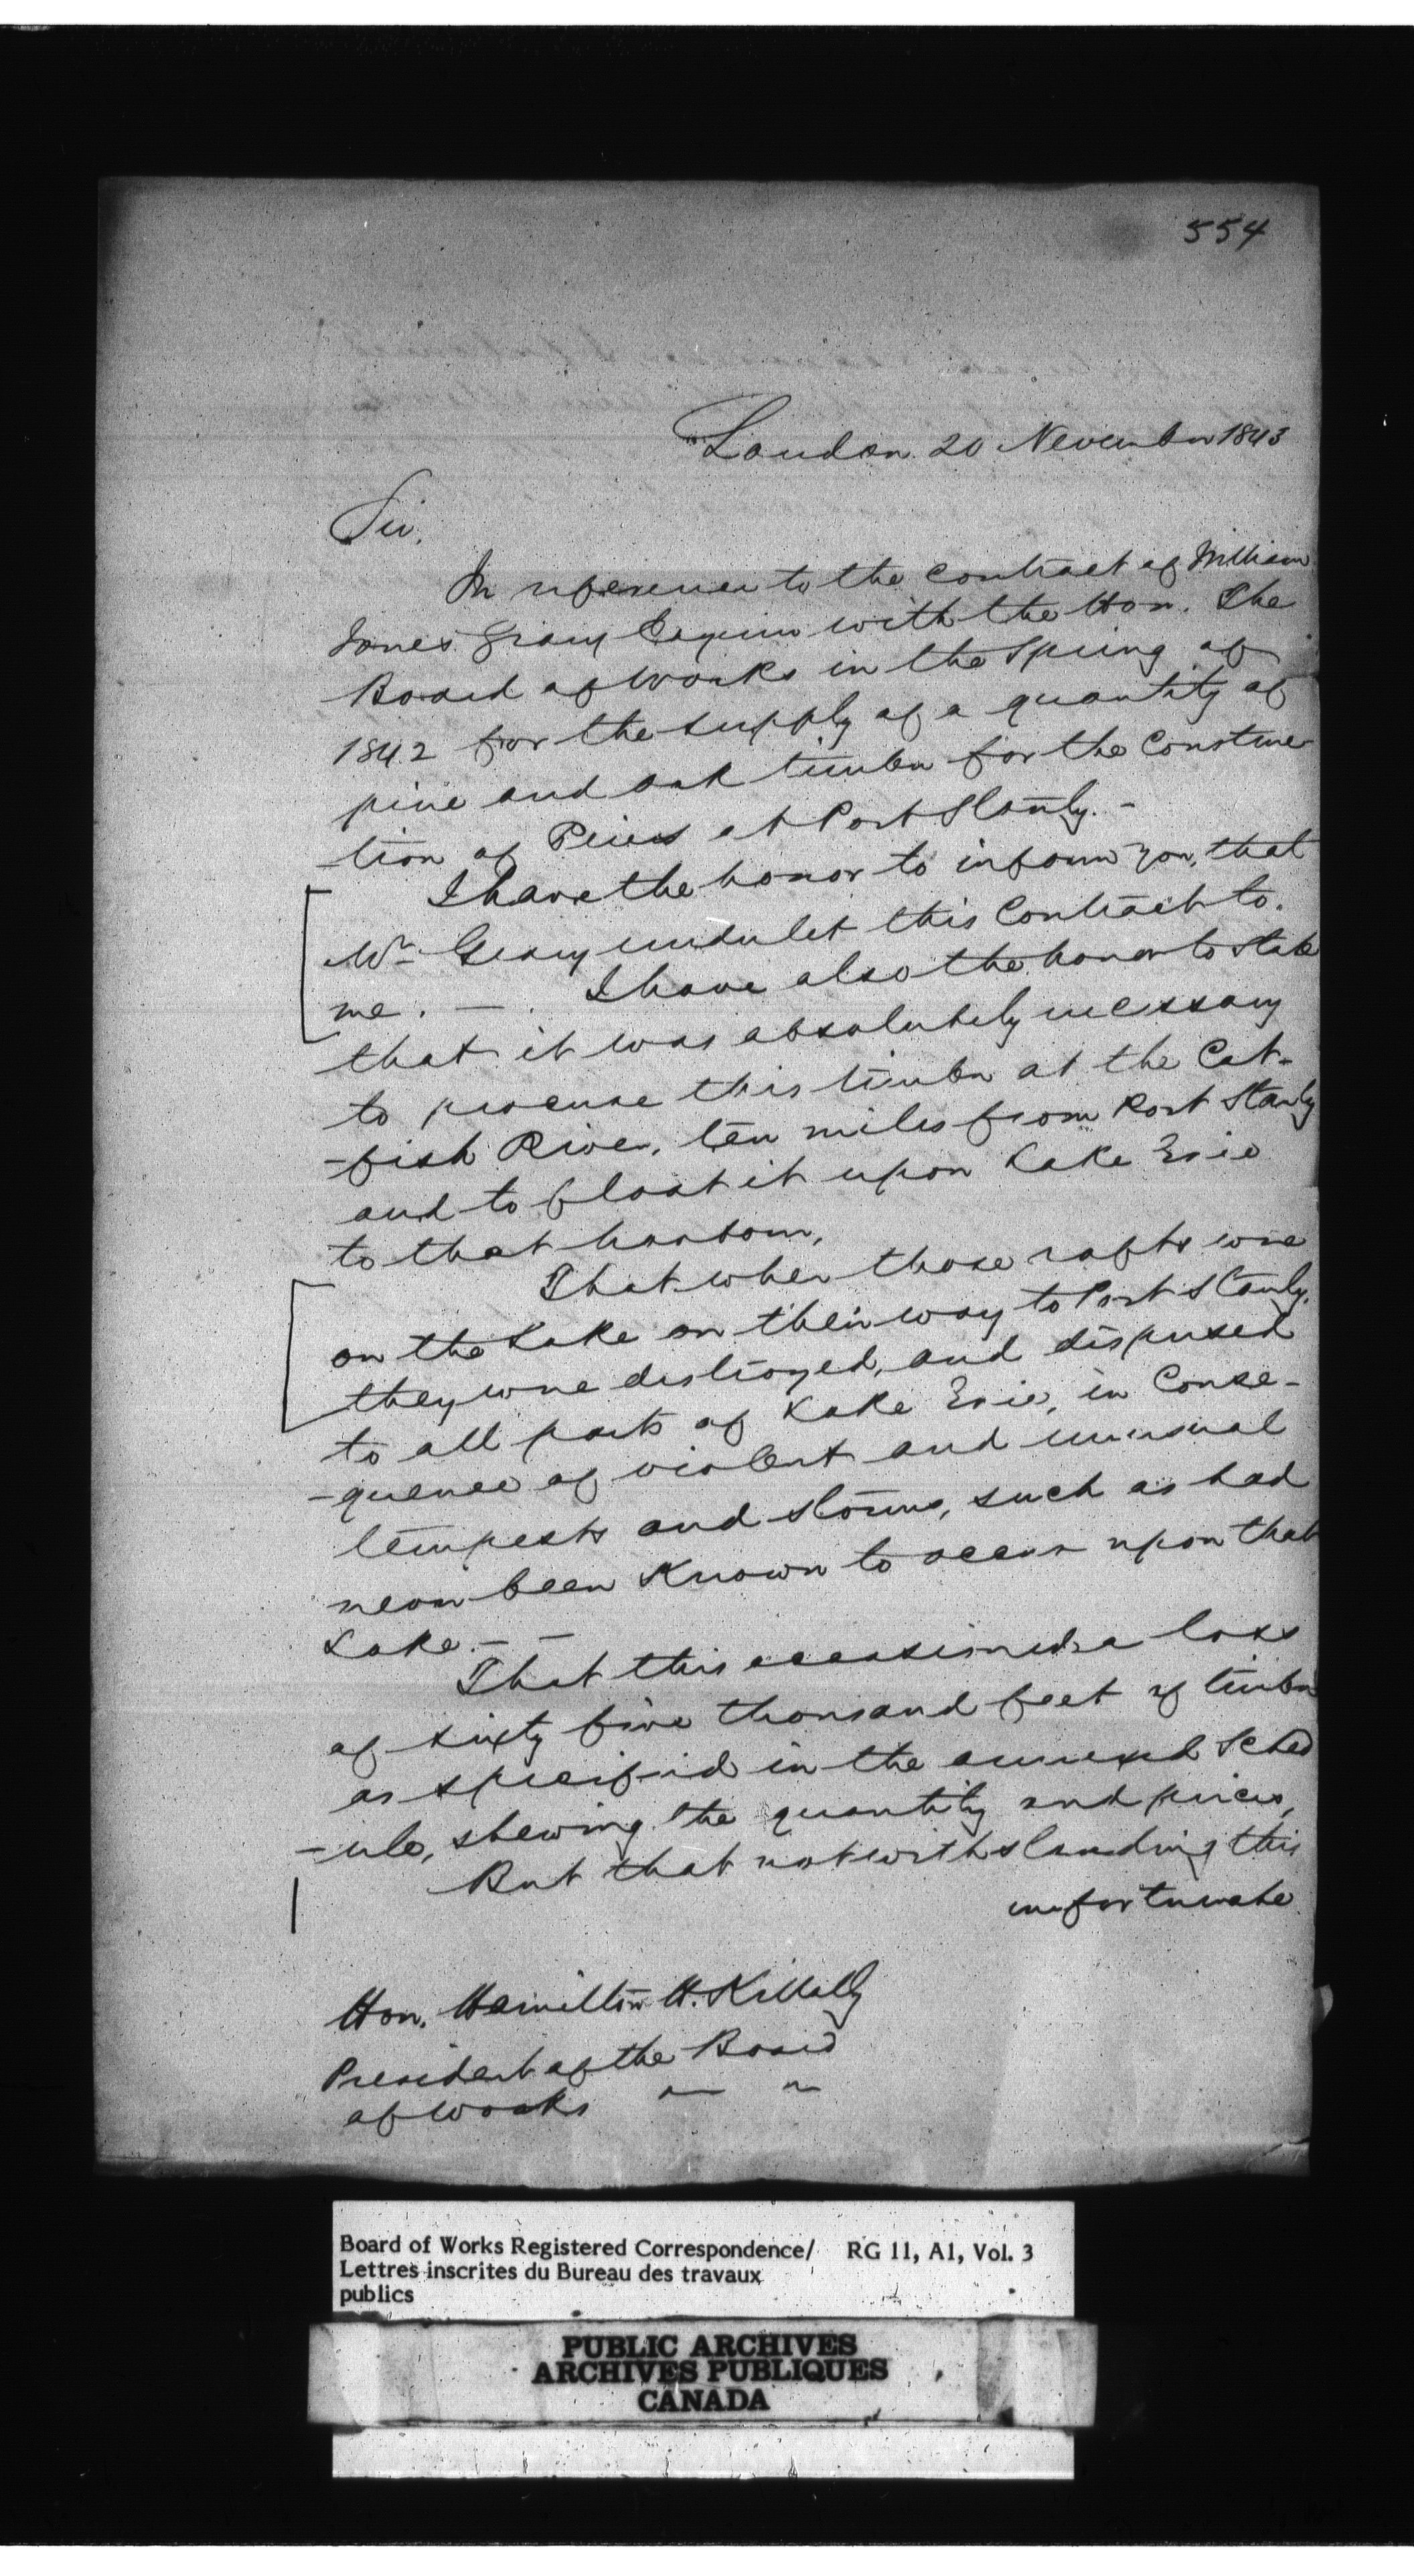 554
London 20 November 1843
Sir,
In reference to the contract of William
Jones Geary Esquire with the Hon. The
Board of Works in the Spring of
1842 for the supply of a quantity of
pine and oak timber for the Construc-
tion of Piers at Port Stanly.-
I have the honor to inform you, that
Mr Geary underlet this Contract to.
me. - I have also the honor to state
that it was absolutely necessary
to procure this timber at the Cat-
-fish River, ten miles from Port Stanly
and to float it upon Lake Erie
to that harbour,
That when those rafts were
on the Lake on their way to Port Stanly.
they were destroyed, and dispersed
to all parts of Lake Erie, in Conse-
-quence of violent and unusual
tempests and storms, such as had
never been known to occur upon that
Lake.- -
That this occasioned a loss
of sixty five thousand feet of timber
as specified in the annexed Sched
-ule, shewing the quantity and prices,
But that notwithstanding this
unfortunate
Hon. Hamilton H. Killally
President of the Board
of Works
Board of Works Registered Correspondence/ RG 11, A1, Vol. 3
Lettres inscrites du Bureau des travaux
publics
PUBLIC ARCHIVES
ARCHIVES PUBLIQUES
CANADA